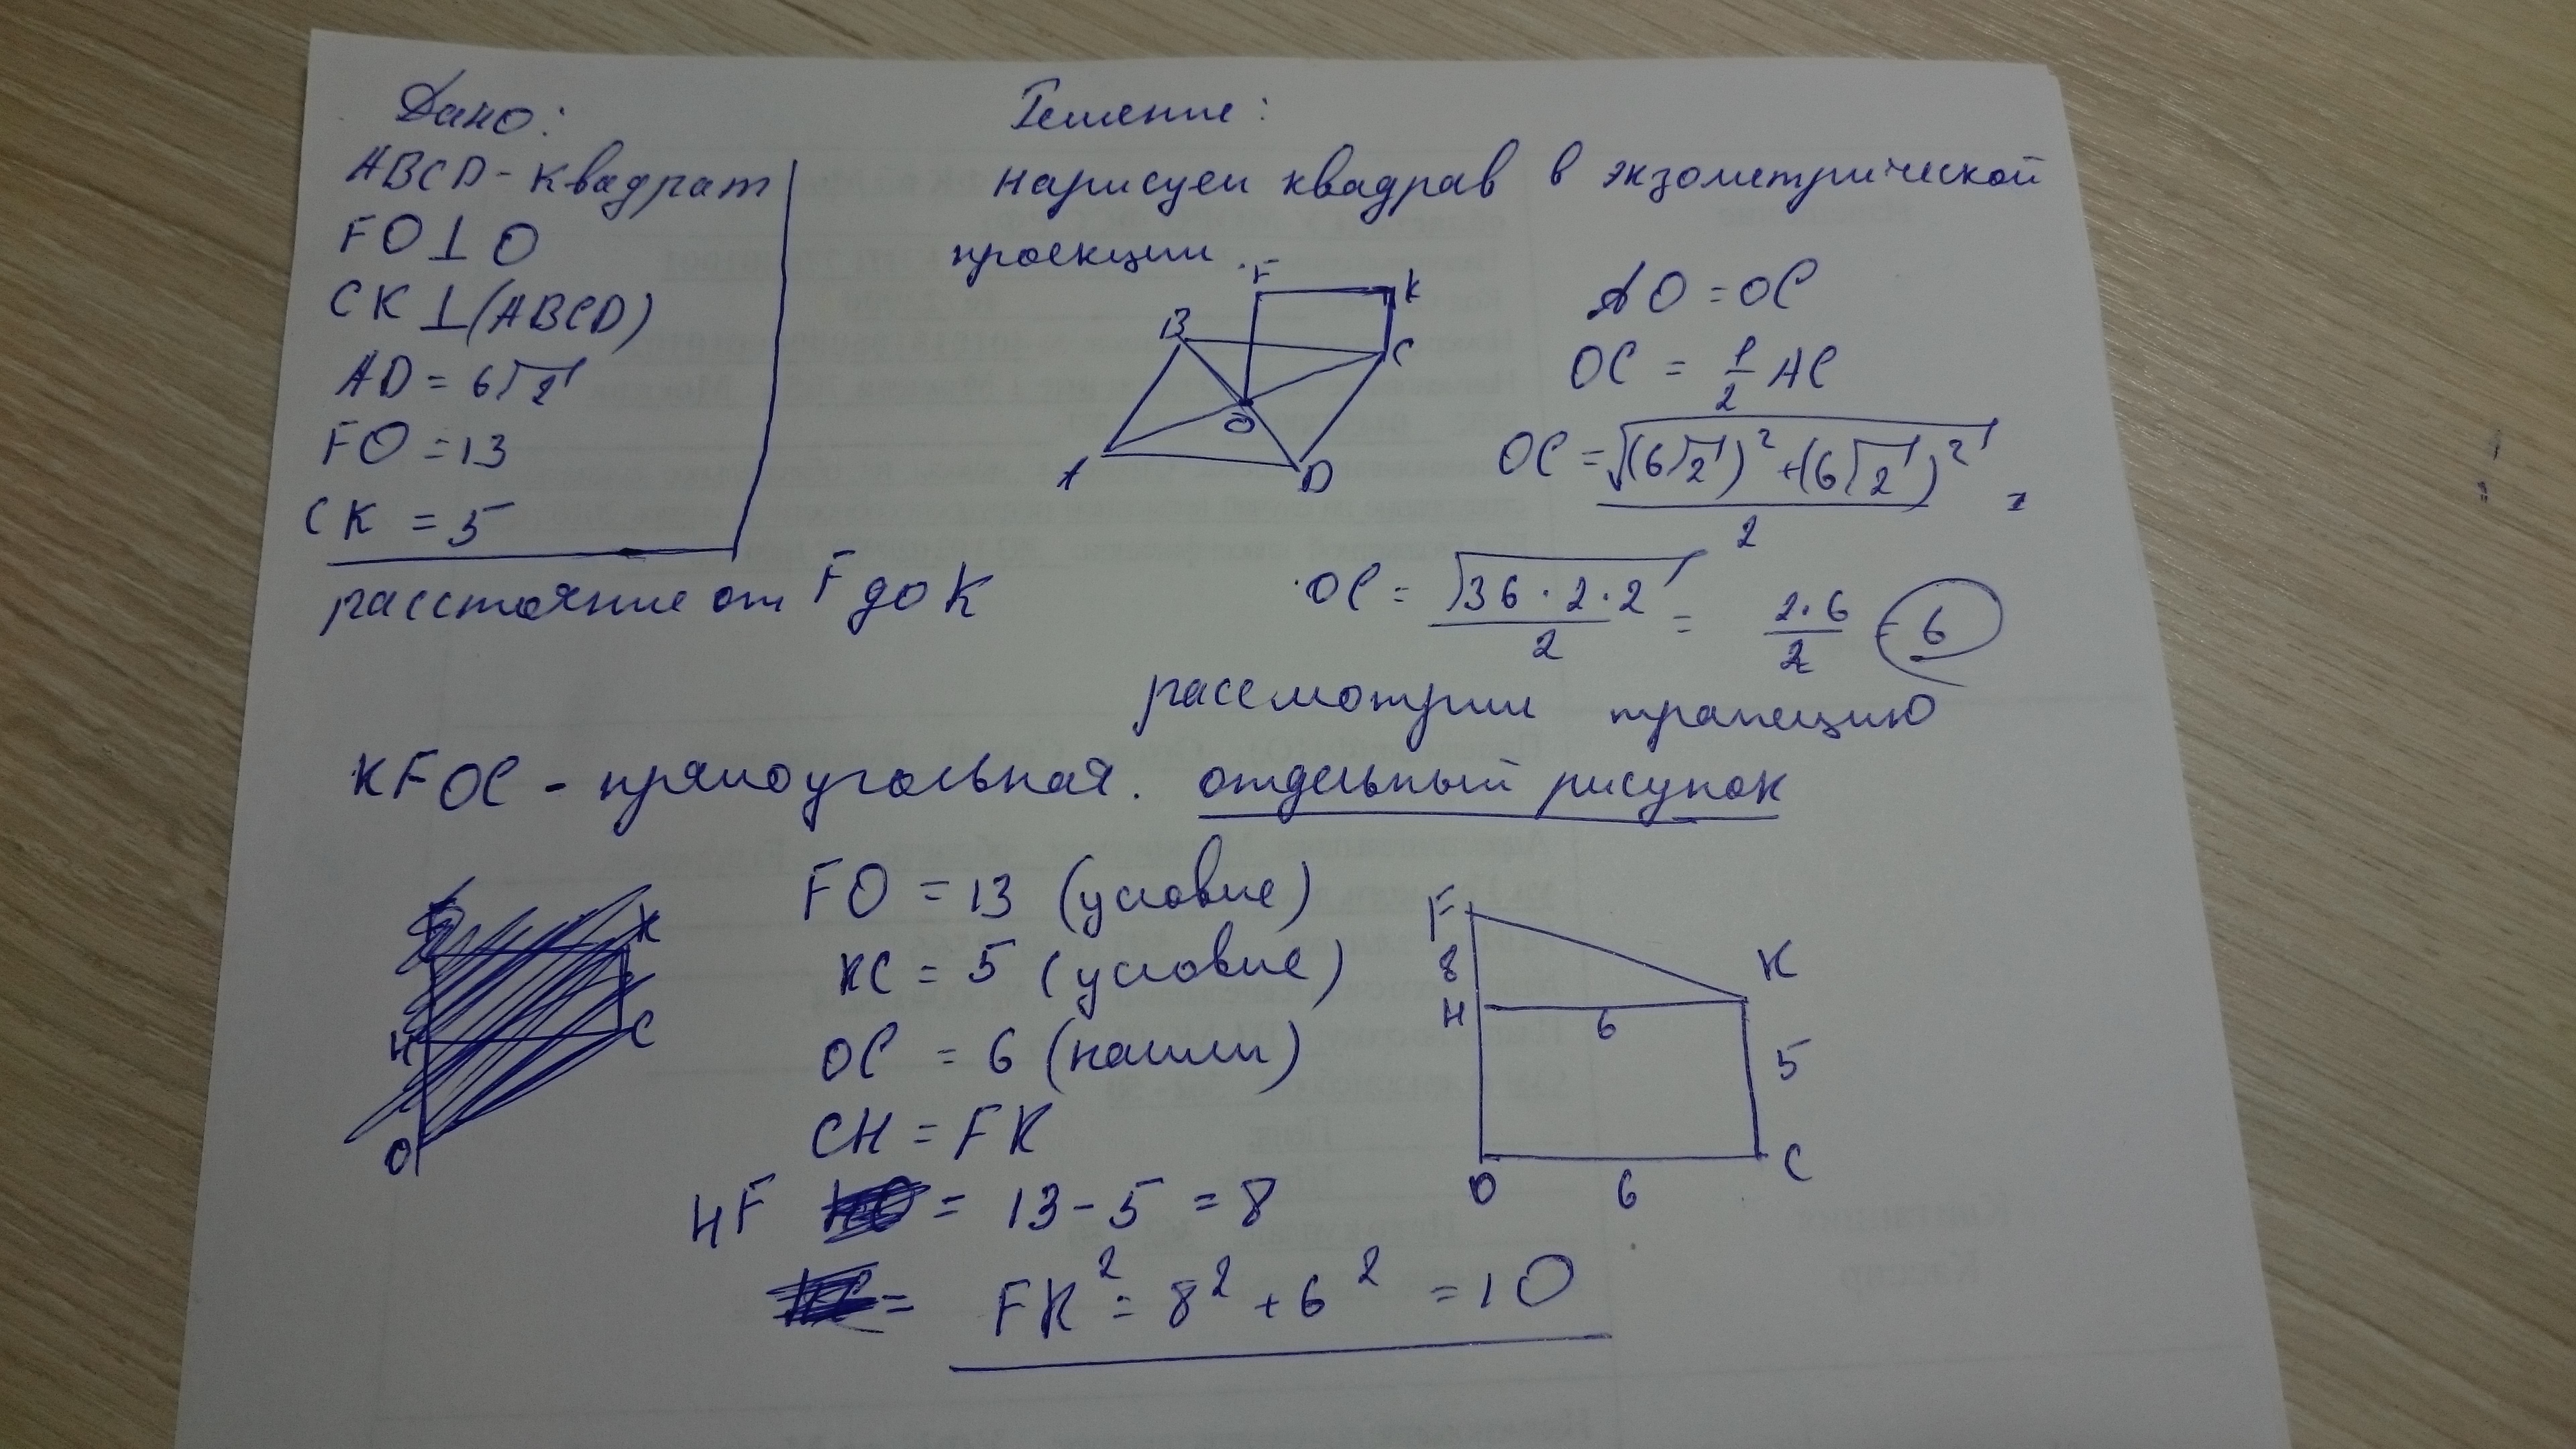 Дано:
ABCD - квадрат
FO ⊥ O
CK ⊥ (ABCD)
AD = 6√2
FO = 13
CK = 5
расстояние от F до K
Решение:
нарисуем квадрав в экзометрической
проекции.
F
K
B
C
O
A
D
AO = OC
OC = 1/2 AC
OC = √((6√2)² + (6√2)²) / 2 =
OC = √(36 · 2 · 2) / 2 = 2·6 / 2 = 6
рассмотрим трапецию
KFOC - прямоугольная. отдельный рисунок
K
H
C
O
FO = 13 (условие)
KC = 5 (условие)
OC = 6 (нашли)
CH = FK
HF = 13 - 5 = 8
= FK² = 8² + 6² = 10
F
8
K
H
6
5
O
6
C